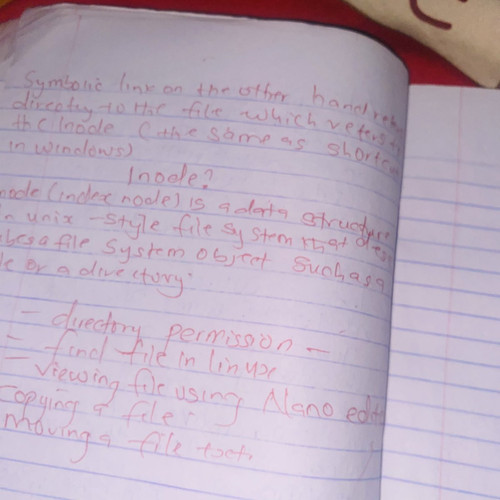 Symbolic link on the other hand refe
directly to the file which refers to
the Inode (the same as shortcu
in windows)
Inode?
node (index node) is a data structure
in unix-style file system that des
ibes a file system object such as a
le or a directory.
- directory permission -
- find file in linux
- viewing file using Nano edit
Copying a file.
moving a file